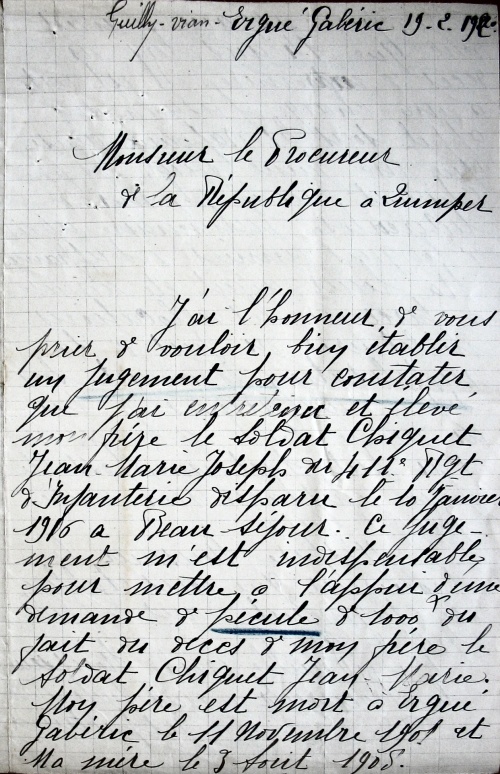 Guilly-vian-Ergué Gabéric 19-2. 1920
Monsieur le Procureur
de la République à Quimper
J'ai l'honneur de vous
prier de vouloir bien établir
un jugement pour constater
que j'ai et élevé
mon frère le soldat Chiquet
Jean Marie Joseph du 411e Rgt
d'Infanterie disparu le 10 Janvier
1916 a Beau Séjour. Ce juge
ment m'est indispensable
pour mettre à l'appui d'une
demande de pécule de 1000 f du
fait du décès de mon frère le
soldat Chiquet Jean-Marie.
Mon père est mort à Ergué
Gabéric le 11 Novembre 1901 et
Ma mère le 3 Août 1905.